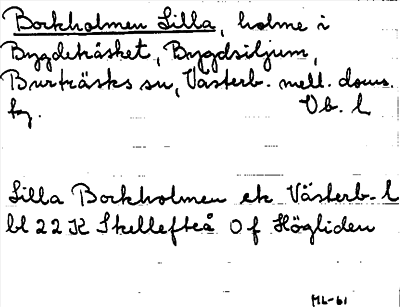 Borkholmen Lilla, holme i
Bygdeträsket, Bygdsiljum,
Burträsks sn, Västerb. mell. doms.
fg. Vb. l
Lilla Borkholmen ek Västerb. l
bl 22 K Skellefteå 0 f Högliden
ML-61